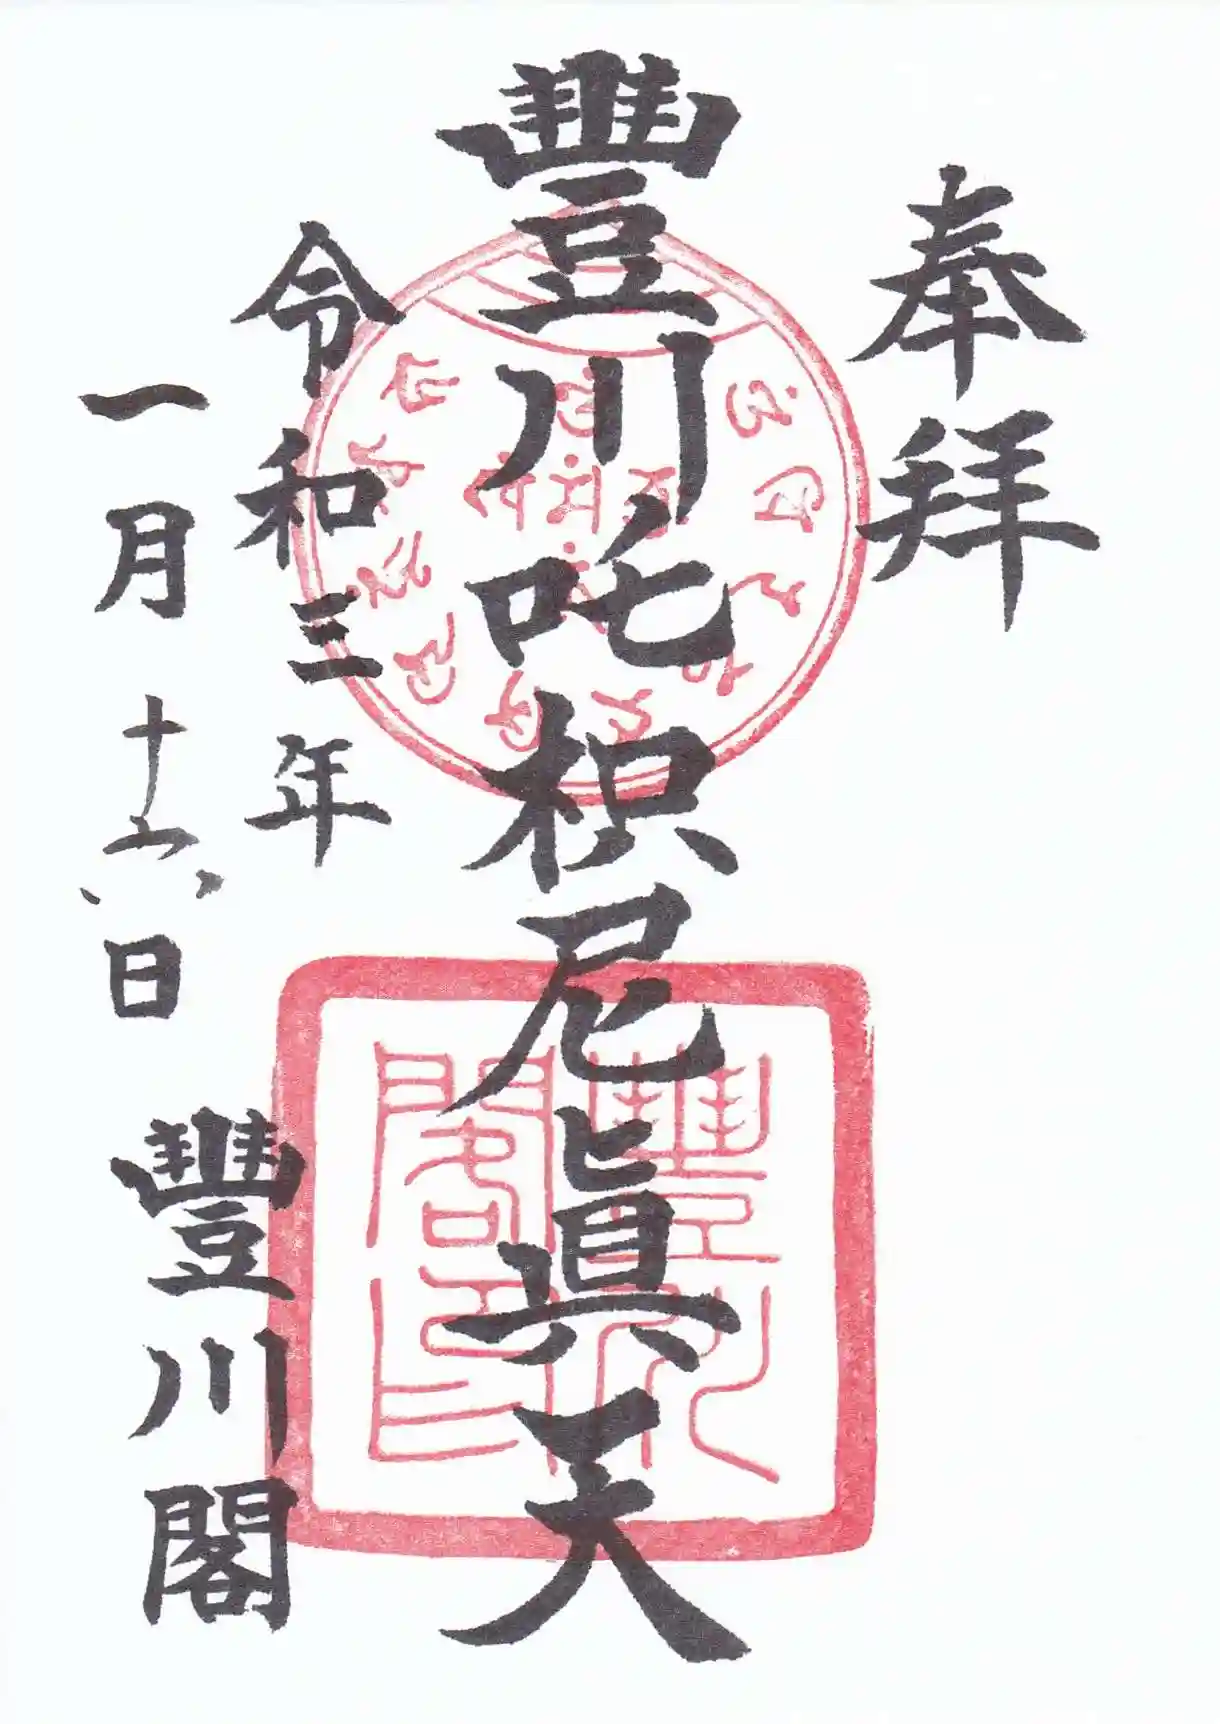 奉拝
豐川吒枳尼眞天
令和三年
一月十六日
豐川閣
豐川閣印